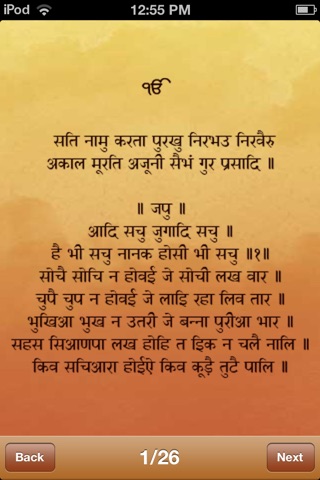 iPod 12:55 PM
ੴ
सति नामु करता पुरखु निरभउ निरवैरु
अकाल मूरति अजूनी सैभं गुर प्रसादि ॥
॥ जपु ॥
आदि सचु जुगादि सचु ॥
है भी सचु नानक होसी भी सचु ॥१॥
सोचै सोचि न होवई जे सोची लख वार ॥
चुपै चुप न होवई जे लाइ रहा लिव तार ॥
भुखिआ भुख न उतरी जे बन्ना पुरीआ भार ॥
सहस सिआणपा लख होहि त इक न चलै नालि ॥
किव सचिआरा होईऐ किव कूड़ै तुटै पालि ॥
Back 1/26 Next